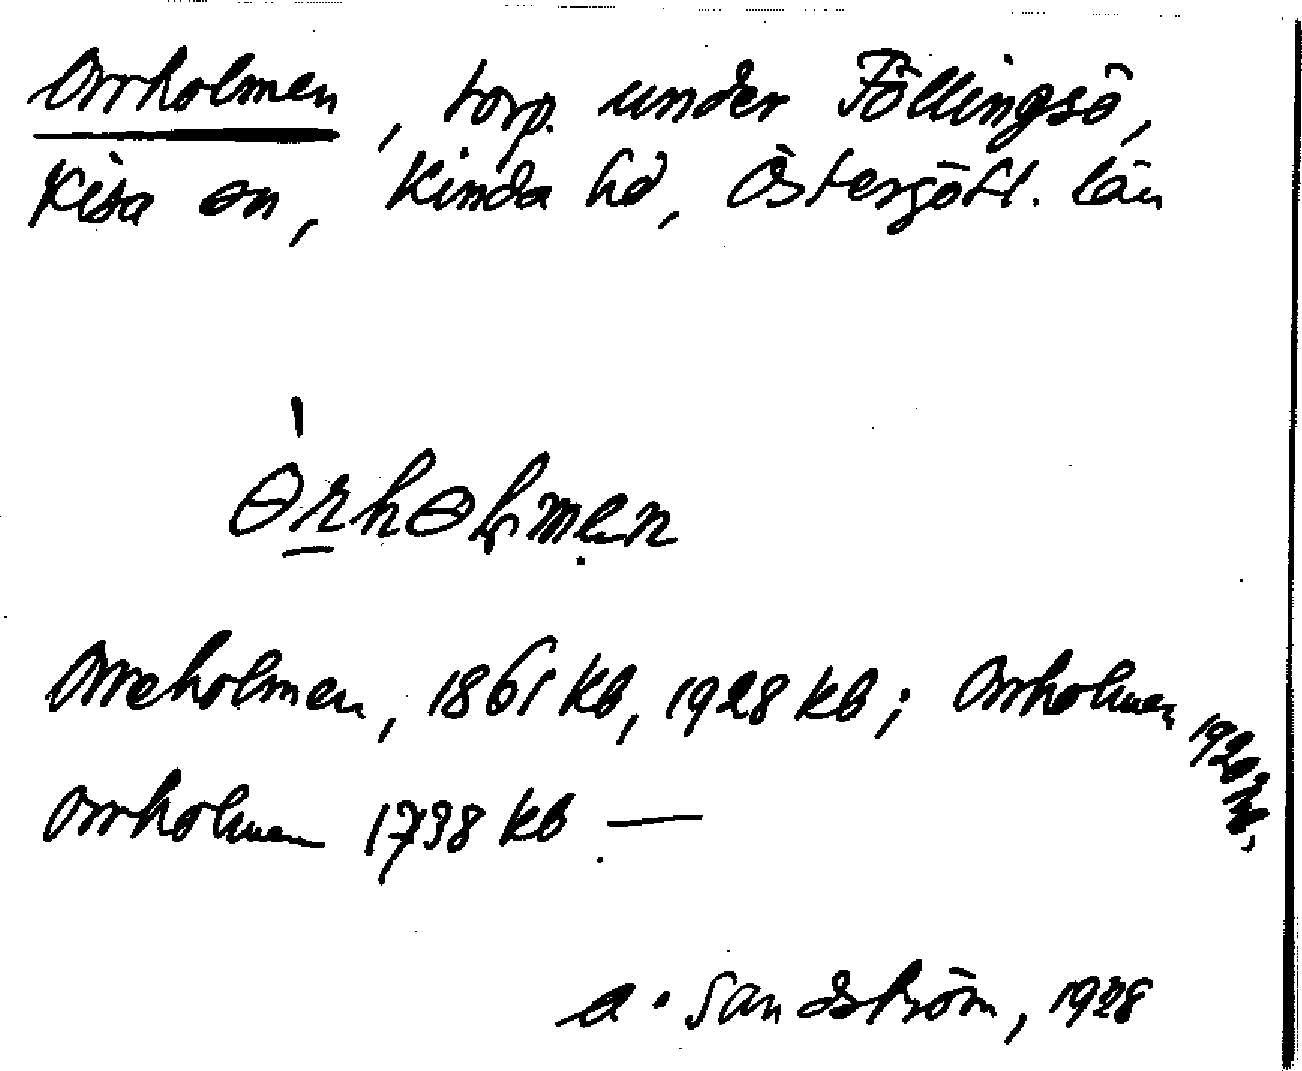 Orrholmen, torp. under Föllingsö,
Kisa sn, Kinda hd, Östergötl. län
ˈɵrhɵlmen
Orreholmen, 1861 kb, 1928 kb; Orrholmen
Orrholmen 1738 kb —
A. Sandström, 1928